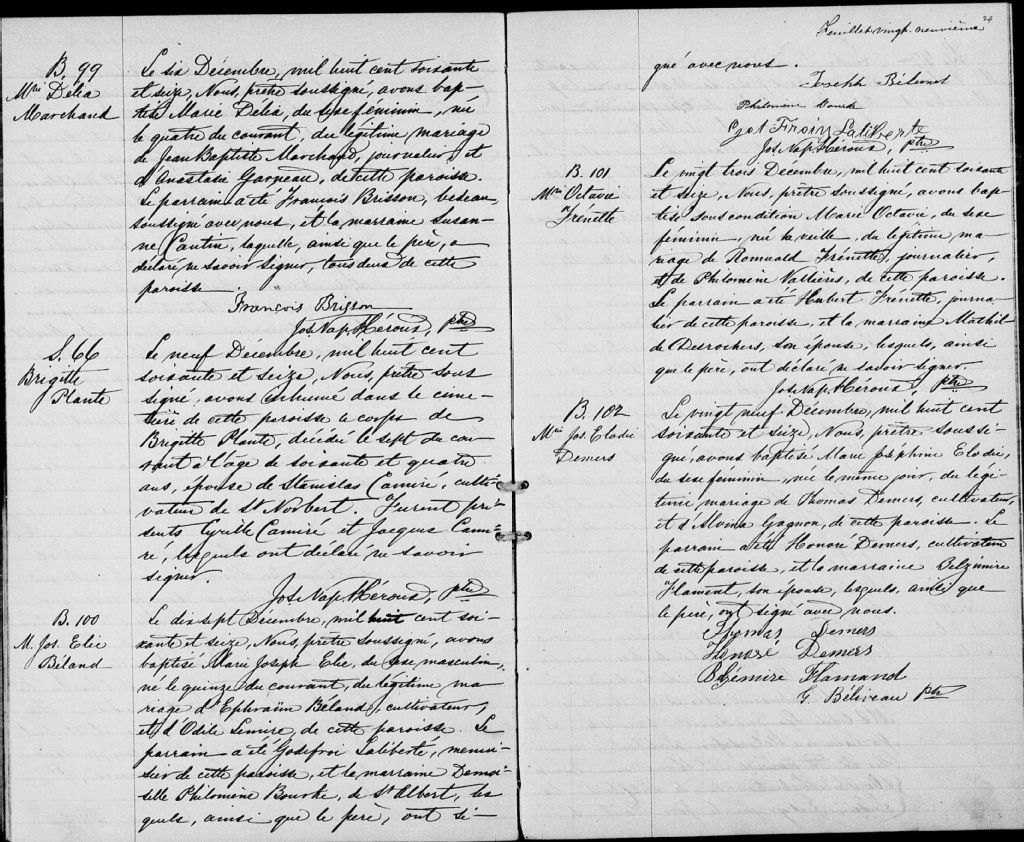 B. 99
Mie Délia
Marchand
Le six Décembre, mil huit cent soixante
et seize, Nous, prêtre soussigné, avons bap-
tisé Marie Délia, du sexe féminin, née
le quatre du courant, du légitime mariage
de Jean Baptiste Marchand, journalier, et
d'Anastasie Garneau, de cette paroisse.
Le parrain a été François Brisson, bedeau,
soussigné avec nous, et la marraine Susan-
ne Cantin, laquelle, ainsi que le père, a
déclaré ne savoir signer, tous deux de cette
paroisse.
François Brisson
Jos. Nap. Héroux, ptre
S. 66
Brigitte
Plante
Le neuf Décembre, mil huit cent
soixante et seize, Nous, prêtre sous
signé, avons inhumé dans le cime-
tière de cette paroisse le corps de
Brigitte Plante, décédée le sept du cou-
rant à l'âge de soixante et quatre
ans, épouse de Stanislas Camiré, culti-
vateur de St Norbert. Furent pré-
sents Cyrille Camiré et Jacques Cami-
ré, lesquels ont déclaré ne savoir
signer.
Jos. Nap. Héroux, ptre
B. 100
M. Jos. Elie
Béland
Le dix sept Décembre, mil huit cent soi-
xante et seize, Nous, prêtre soussigné, avons
baptisé Marie Joseph Elie, du sexe masculin,
né le quinze du courant, du légitime ma
riage d'Ephraïm Béland, cultivateur,
et d'Odile Lemire, de cette paroisse. Le
parrain a été Godefroi Laliberté, menui-
sier de cette paroisse, et la marraine Demoi-
selle Philomène Bourke, de St Albert, les
quels, ainsi que le père, ont si-
Feuillet vingt-neuvième
29
gné avec nous.
Joseph Béland
Philomène
Laliberte
Jos. Nap. Héroux, ptre
B. 101
Mie Octavie
Frenette
Le vingt trois Décembre, mil huit cent soixante
et seize, Nous, prêtre soussigné, avons bap
tisé sous condition Marie Octavie, du sexe
féminin, née la veille, du légitime ma-
riage de Romuald Frénette, journalier,
et de Philomène Vallières, de cette paroisse.
Le parrain a été Hubert Frénette, journa-
lier de cette paroisse, et la marraine Mathil-
de Desrochers, son épouse, lesquels, ainsi
que le père, ont déclaré ne savoir signer.
Jos. Nap. Héroux, ptre
B. 102
Mie Jos. Elodie
Demers
Le vingt neuf Décembre, mil huit cent
soixante et seize, Nous, prêtre soussi-
gné, avons baptisé Marie Joséphine Elodie,
du sexe féminin, née le même jour, du légi-
time mariage de Thomas Demers, cultivateur,
et d'Alvina Gagnon, de cette paroisse. Le
parrain a été Honoré Demers, cultivateur
de cette paroisse, et la marraine Zelzimire
Flament, son épouse, lesquels, ainsi que
le père, ont signé avec nous.
Thomas Demers
Honoré Demers
Flamand
G. Béliveau Ptre